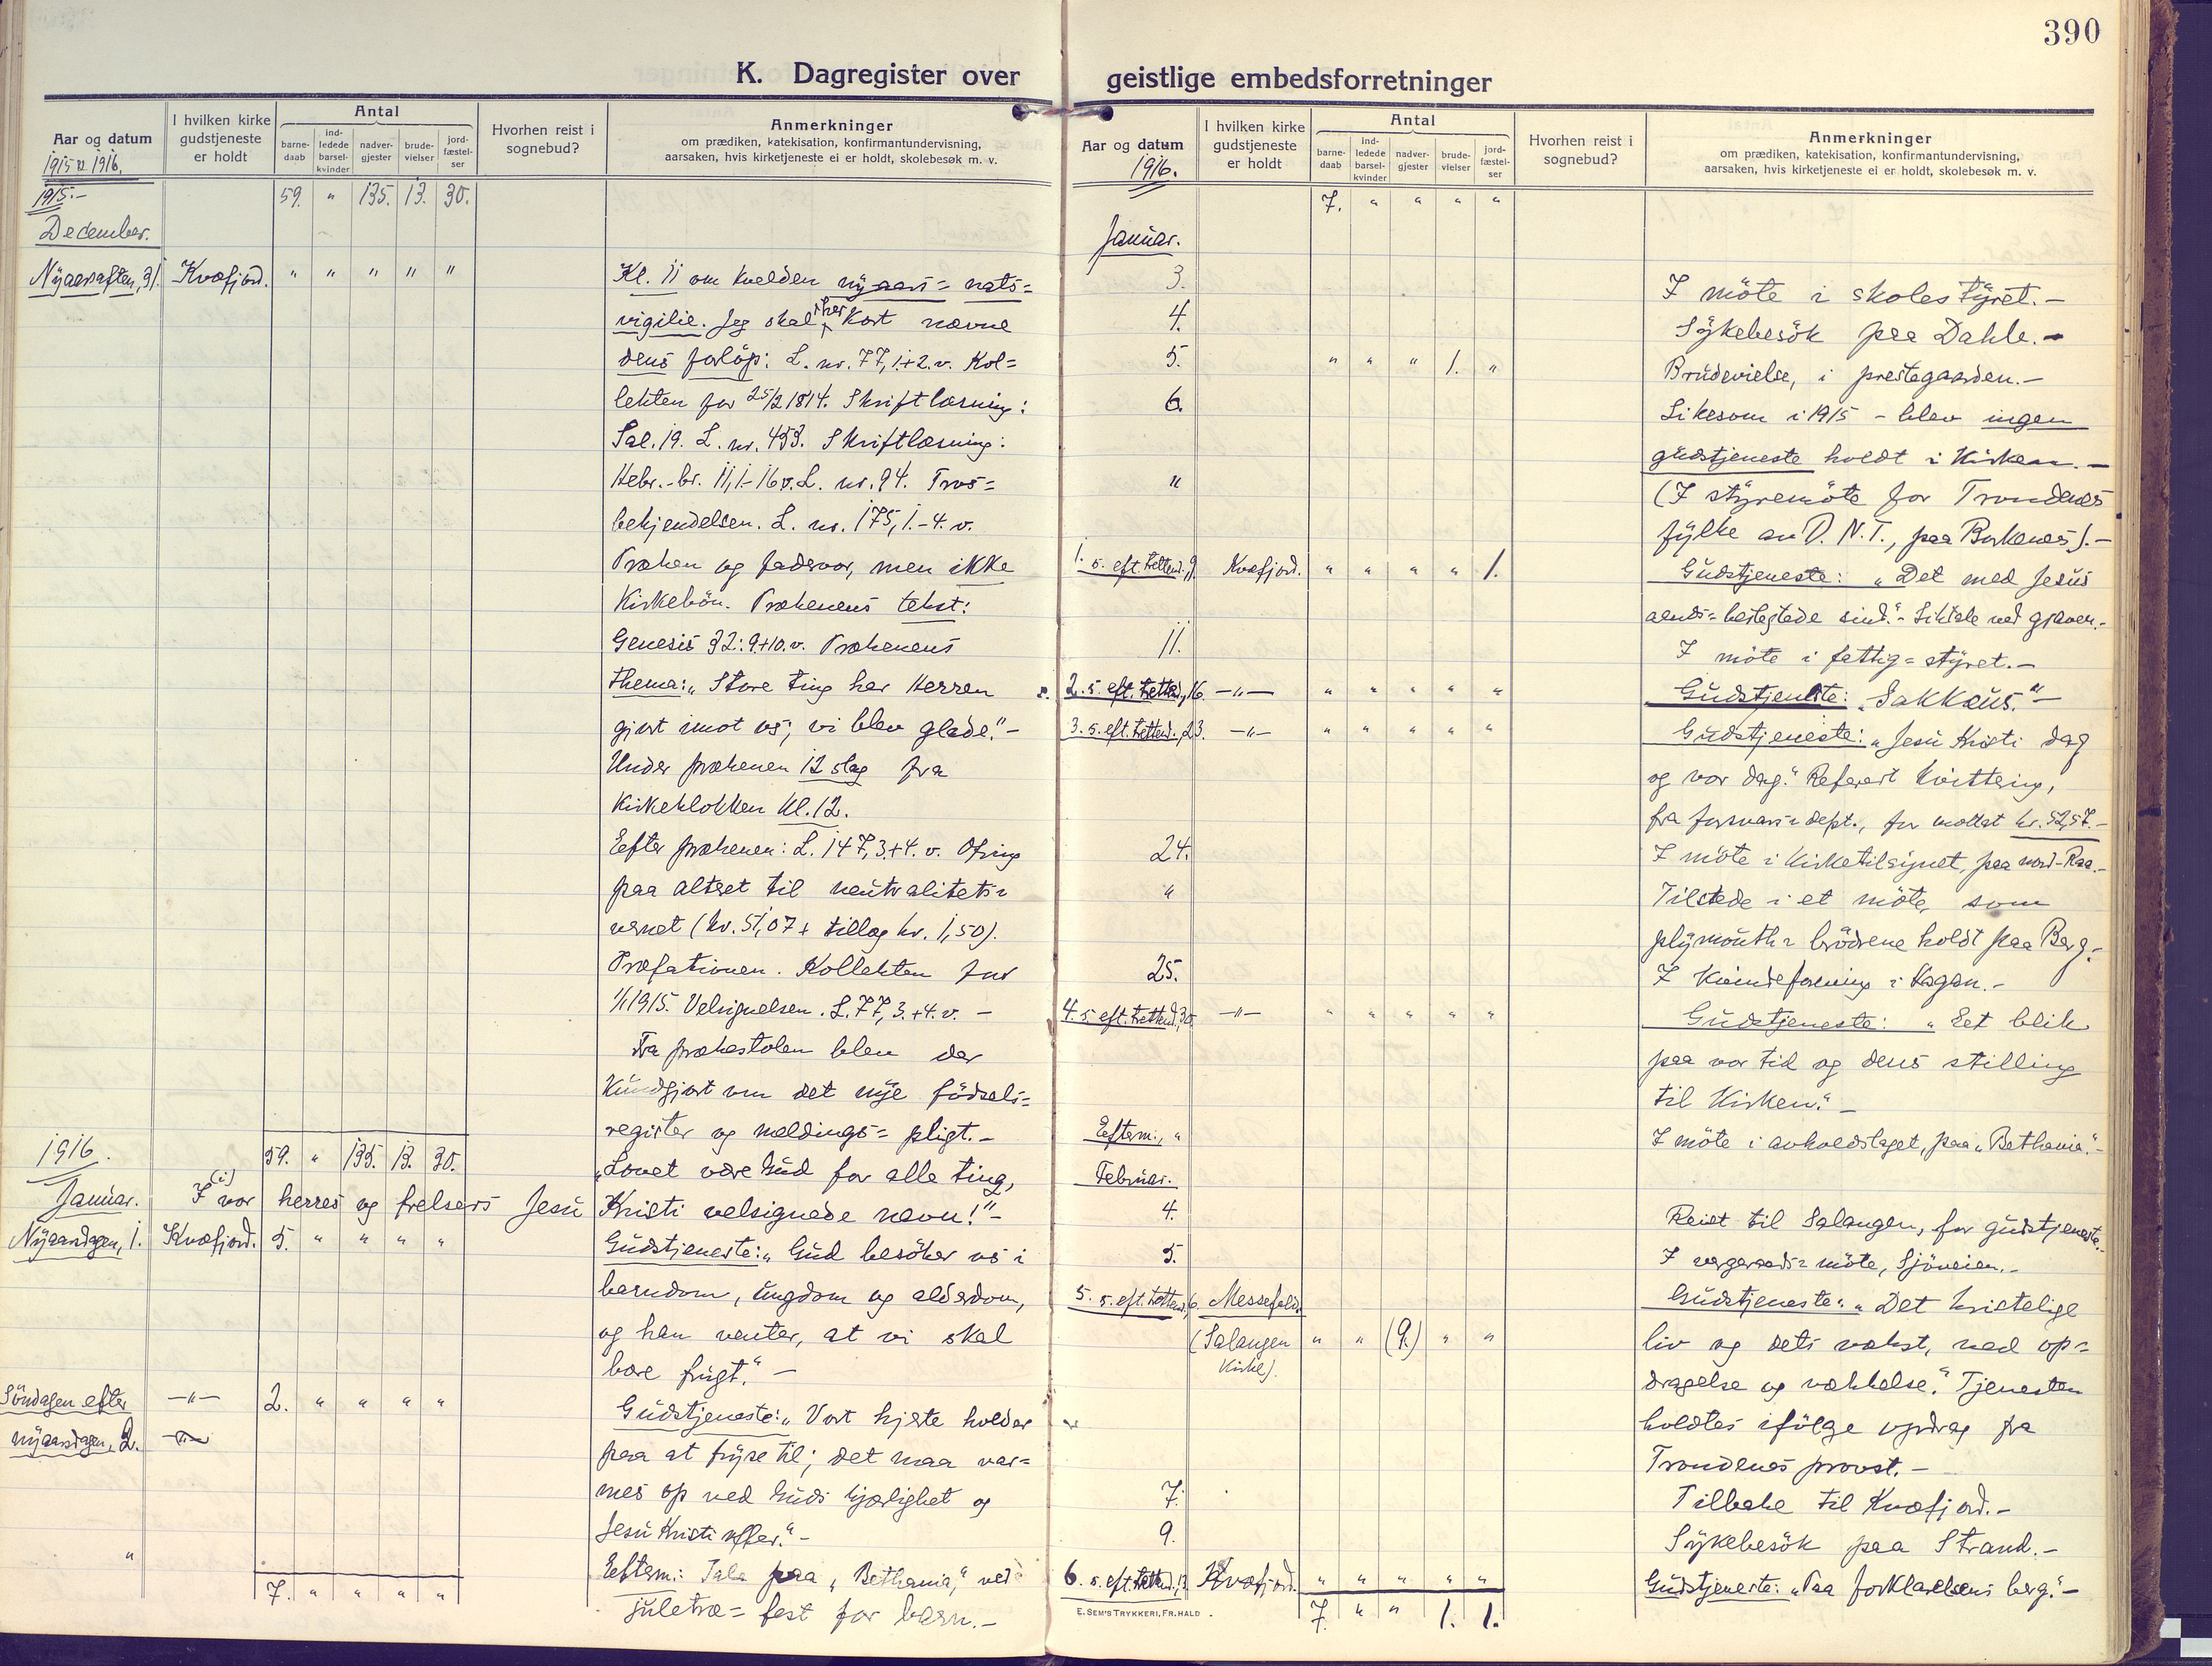 390
K. Dagregister over geistlige embedsforretninger
Aar og datum
1915 & 1916.
I hvilken kirke gudstjeneste er holdt
Antal
barne-daab
ind-ledede barsel-kvinder
nadver-gjester
brude-vielser
jord-fæstel-ser
Hvorhen reist i sognebud?
Anmerkninger
om prædiken, katekisation, konfirmantundervisning,
aarsaken, hvis kirketjeneste ei er holdt, skolebesøk m. v.
1915.- 59. " 135. 13. 30.
December.
Nyaarsaften, 31. Kvæfjord. " " " " " Kl. 11 om kvelden nyaars= nats=
vigilie. Jeg skal her kort nævne
dens forløp: L. nr. 77, 1.+2. v. Kol=
lekten for 25/2 1814. Skriftlæsning:
Sal. 19. L. nr. 453. Skriftlæsning:
Hebr.-br. 11, 1-16 v. L. nr. 94. Tros=
bekjendelsen. L. nr. 175, 1.-4. v.
Præken og fadervor, men ikke
Kirkebön. Prækenens tekst:
Genesis 32: 9.+10. v. Prækenens
thema: "Store ting har Herren
gjort imot os; vi blev glade."-
Under prækenen 12 slag fra
Kirkeklokken kl. 12.
Efter prækenen: L. 147, 3.+4. v. Ofring
paa altret til neutralitets=
vernet (kr. 51,07 + tillæg kr. 1,50).
Præfationen. Kollekten for
1/1 1915. Velsignelsen. L. 77, 3.+4. v. -
Fra prækestolen blev der
kundgjort om det nye födsels=
register og meldings= pligt.-
1916. 59. " 135. 13. 30. "Lovet være Gud for alle ting,
Januar. I (i) vor herres og frelsers Jesu Kristi velsignede navn!"-
Nyaarsdagen, 1. Kvæfjord. 5. " " " " Gudstjeneste: "Gud besöker os i
barndom, ungdom og alderdom,
og han venter, at vi skal
bære frugt." -
Söndagen efter -"- 2. " " " " Gudstjeneste: "Vort hjerte holder
nyaarsdagen, 2. -"- paa at fryse til; det maa var=
mes op ved Guds kjærlighet og
Jesu Kristi offer."-
" Efterm.: Tale paa "Bethania," ved
7. " " " " juletræ= fest for barn.-
Aar og datum
1916.
I hvilken kirke gudstjeneste er holdt
Antal
barne-daab
ind-ledede barsel-kvinder
nadver-gjester
brude-vielser
jord-fæstel-ser
Hvorhen reist i sognebud?
Anmerkninger
om prædiken, katekisation, konfirmantundervisning,
aarsaken, hvis kirketjeneste ei er holdt, skolebesøk m. v.
7. " " " "
Januar.
3. I möte i skolestyret.-
4. Sykebesök paa Dahle.-
5. " " " 1. " Brudevielse, i prestegaarden.-
6. Likesom i 1915 - blev ingen
gudstjeneste holdt i Kirken.-
" (I styremöte for Trondenes
fylke av D. N. T., paa Borkenes).-
1. s. eft. trettend., 9. Kvæfjord. " " " " 1. Gudstjeneste: "Det med Jesus
aands= beslegtede sind."- Liktale ved graven.-
11. I möte i fattig= styret.-
2. s. eft. trettend., 16. -"- " " " " " Gudstjeneste: "Sakkæus."-
3. s. eft. trettend., 23. -"- " " " " " Gudstjeneste: "Jesu Kristi dag
og vor dag." Referert kvittering,
fra forsvars= dept., for mottat kr. 52,57.-
24. I möte i Kirketilsynet, paa nord-Raa.-
" Tilstede i et möte, som
plymouth= brödrene holdt paa Berg.-
25. I kvindeforening i Hagan.-
4. s. eft. trettend., 30. -"- " " " " " Gudstjeneste: "Eet blik
paa vor tid og dens stilling
til Kirken."-
Efterm., " I möte i avholdslaget, paa "Bethania."-
Februar.
4. Reist til Salangen, for gudstjeneste.-
5. I vergeraads= möte, Sjöveien.-
5. s. eft. trettend., 6. Messefald. Gudstjeneste: "Det kristelige
(Salangen Kirke). " " (9.) " " liv og dets vækst, ved op=
dragelse og vækkelse." Tjenesten
holdtes ifölge opdrag fra
Trondenes provst.-
7. Tilbake til Kvæfjord.-
9. Sykebesök paa Strand.-
6. s. eft. trettend., 13. Kvæfjord. " " " " " Gudstjeneste: "Paa forklarelsens berg."-
7. " " 1. 1.
E. SEM'S TRYKKERI, FR.HALD